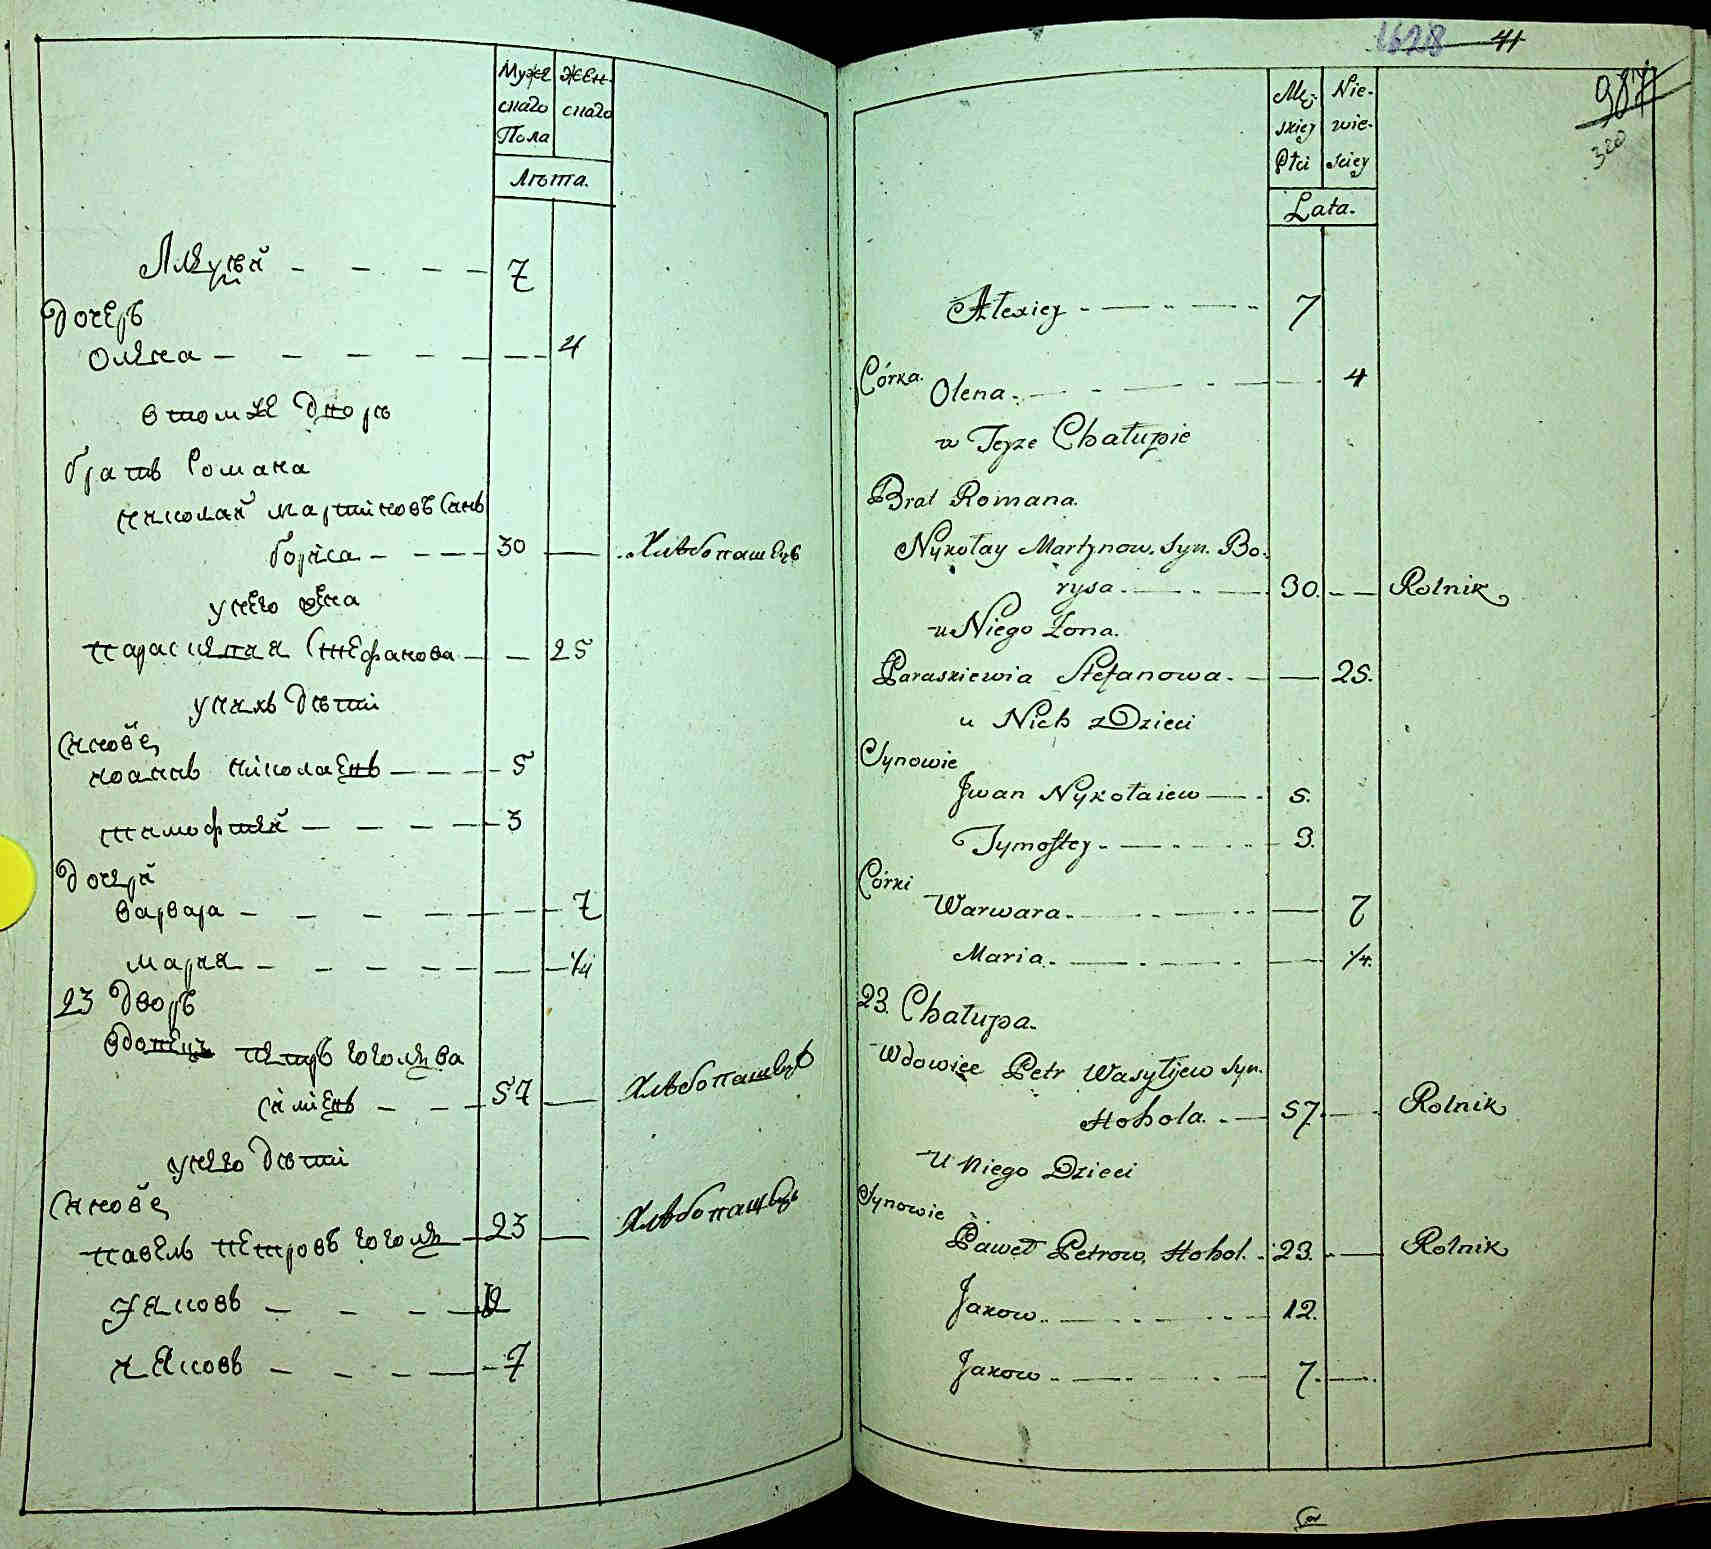 Муже
скаго
Пола
Жен-
скаго
Лѣта.
Алкуѣй 7
Дочеръ
Олена 4
В томже Дворѣ
Братъ Романа
Николай Мартіновъ Синъ
Боріса 30 Хлѣбопашецъ
У него жена
Параскевія Стефанова 25
У нихъ Дѣти
Синове
Иоаннъ Ніколаевъ 5
Тимофтей 3
Дочерй
Варвара 7
Мария 1/4
23 Дворъ
Вдовецъ Петръ
57 Хлѣбопашецъ
У него Дѣти
Синове
Павелъ Петровъ Гоголь 23 Хлѣбопашецъ
Яковъ 12
Яковъ 7
1628 41
987
320
Męz-
skiey
Płci
Nie-
wie-
sciey
Lata.
Alexiey 7
Córka.
Olena. 4
w Teyze Chałupie
Brat Romana.
Nykołay Martynow. Syn. Bo-
rysa 30. Rolnik
u Niego Żona.
Paraskiewia Stefanowa. 25.
u Nich zDzieci
Synowie
Jwan Nykołaiew 5.
Tymoftey 3.
Córki
Warwara. 7
Maria. 1/4.
23. Chałupa.
Wdowiec Petr Wasylijew Syn.
Hohola. 57. Rolnik
U niego Dzieci
Synowie
Paweł Petrow, Hohol. 23. Rolnik
Jakow 12.
Jakow 7.